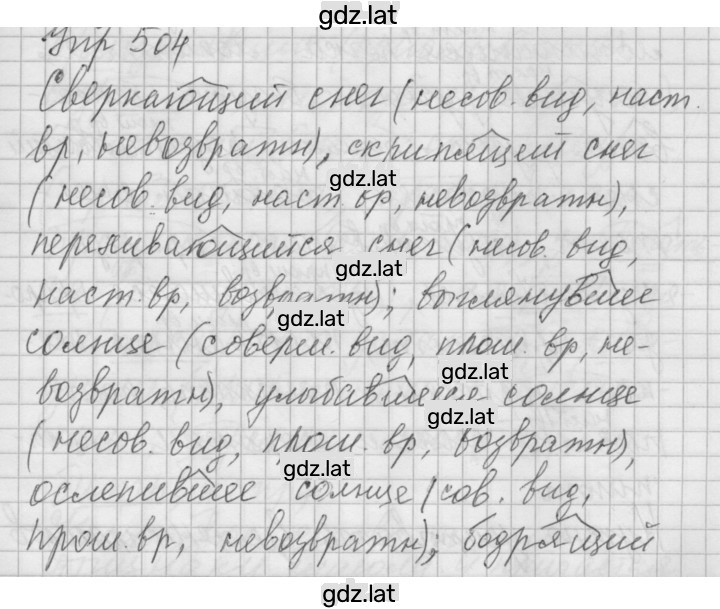 gdz.lat
Упр 504
Сверкающий снег (несов. вид, наст.
вр, невозвратн), скрипящий снег
gdz.lat
(несов. вид, наст. вр, невозвратн),
переливающийся снег (несов. вид,
gdz.lat
наст. вр, возвратн); выглянувшее
gdz.lat
солнце (соверш. вид, прош. вр, не-
gdz.lat
возвратн), улыбавшееся солнце
gdz.lat
(несов. вид, прош. вр, возвратн),
gdz.lat
ослепившее солнце (сов. вид,
прош. вр, невозвратн); бодрящий
gdz.lat